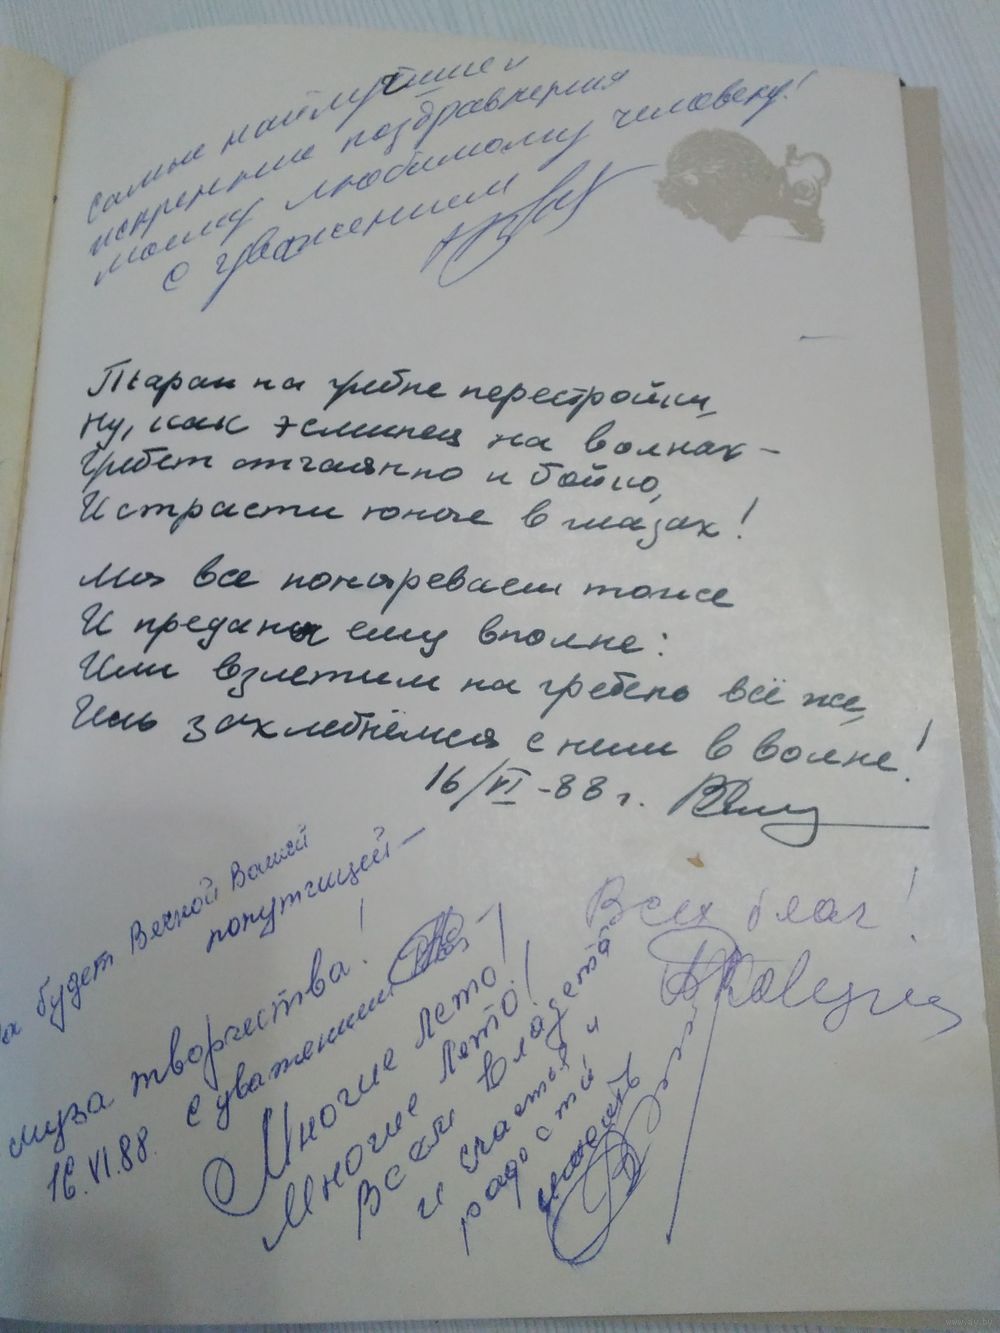 Самые наилучшие и
искренние поздравления
моему любимому человеку!
с уважением
на гребне перестройки,
Ну, как эсминец на волнах –
Гребет отчаянно и бойко,
И страсти юные в глазах!
Мы все подогреваем тоже
И преданы ему вполне:
Или взлетим на гребень всё же,
Иль захлебнёмся с ним в волне!
16/VI-88 г.
Да будет Вечной Вашей
попутчицей –
муза творчества!
с уважением
16.VI.88.
Многие лето!
Многие лето!
Всем владеть
и счастья и
радости
Всех благ!
www.ay.by